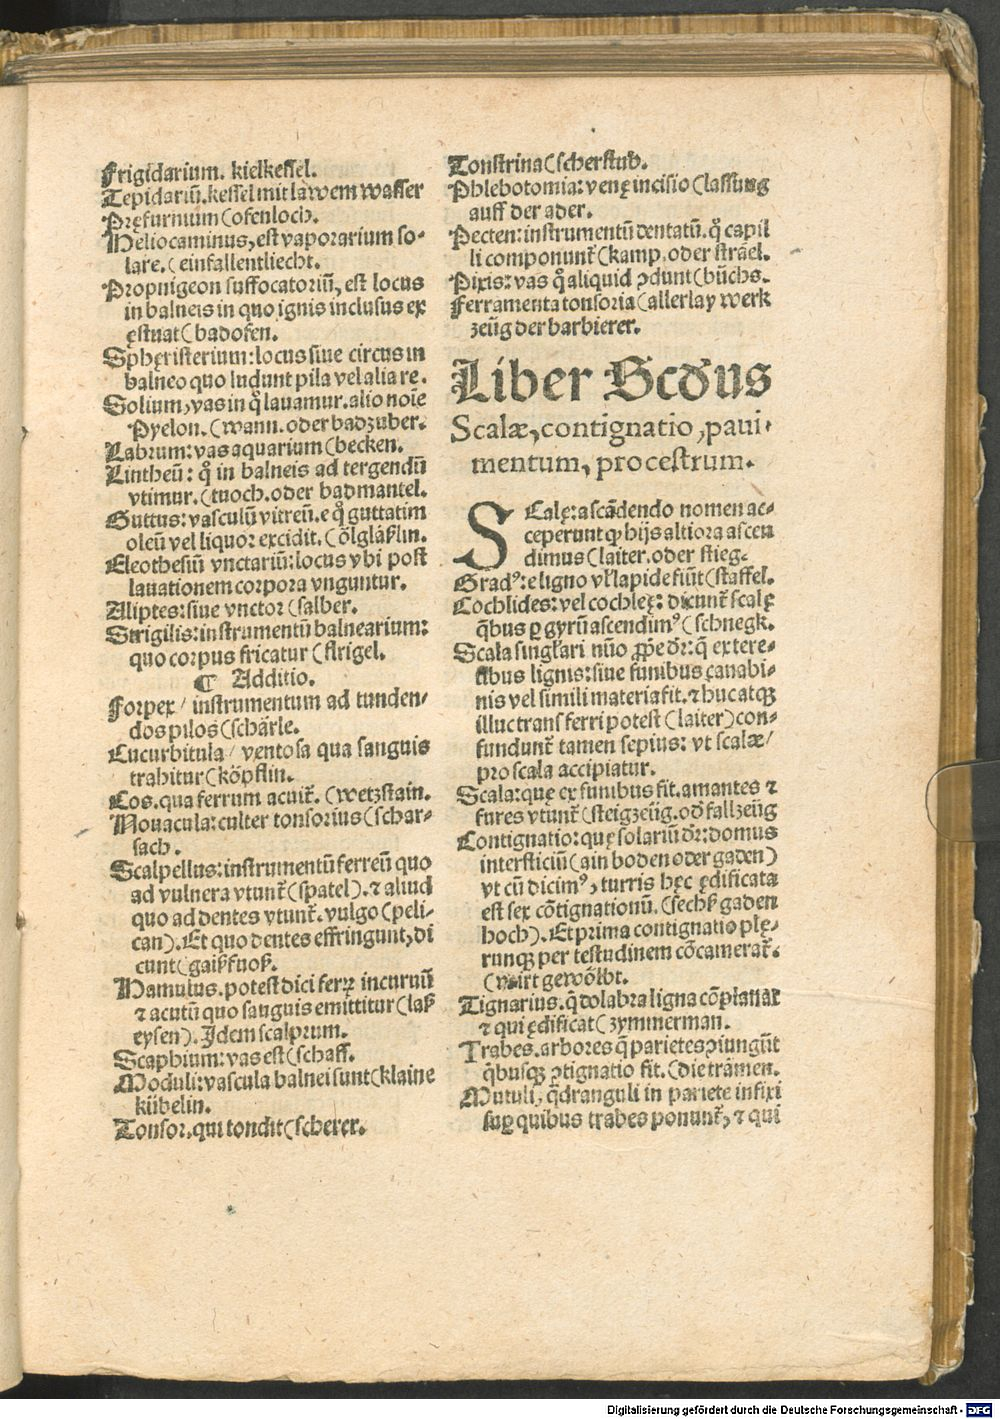 Frigidarium. kielkessel.
Tepidariū. kessel mit lawem wasser
Pręfurnium (ofenloch.
Heliocaminus, est vaporarium so-
lare. (einfallentliecht.
Propnigeon suffocatoriū, est locus
in balneis in quo ignis inclusus ex
ęstuat (badofen.
Sphęristerium: locus siue circus in
balneo quo ludunt pila vel alia re.
Solium, vas in q̊ lauamur. alio noīe
Pyelon. (wann. oder badzuber.
Labrum: vas aquarium (becken.
Lintheū: q̊ in balneis ad tergendū
vtimur. (tuoch. oder badmantel.
Guttus: vasculū vitreū. e q̊ guttatim
oleū vel liquor excidit. (ölgläßlin.
Eleothesiū vnctariū: locus vbi post
lauationem corpora vnguntur.
Aliptes: siue vnctor (salber.
Strigilis: instrumentū balnearium:
quo corpus fricatur (strigel.
¶ Additio.
Forpex / instrumentum ad tunden-
dos pilos (schärle.
Cucurbitula / ventosa qua sanguis
trahitur (köpflin.
Cos. qua ferrum acuit᷑. (wetzstain.
Nouacula: culter tonsorius (schar-
sach.
Scalpellus: instrumentū ferreū quo
ad vulnera vtunt᷑ (spatel). ⁊ aliud
quo ad dentes vtunt᷑. vulgo (peli-
can). Et quo dentes effringunt, di
cunt (gaißfuoß.
Hamulus. potest dici ferꝝ incuruū
⁊ acutū quo sanguis emittitur (laß
eysen). Idem scalprum.
Scaphium: vas est (schaff.
Moduli: vascula balnei sunt (klaine
kübelin.
Tonsor. qui tondit (scherer.
Tonstrina (scherstub.
Phlebotomia: venę incisio (lassung
auff der ader.
Pecten: instrumentū dentatū. q̊ capil
li componunt᷑ (kamp. oder sträel.
Pixis: vas q̊ aliquid ꝯdunt (büchs.
Ferramenta tonsoria (allerlay werk
zeüg der barbierer.
Liber Scďus
Scalæ, contignatio, paui-
mentum, procestrum.
SCalę: ascādendo nomen ac-
ceperunt ꝙ hijs altiora ascen
dimus (laiter. oder stieg.
Gradꝰ: e ligno vl̓ lapide fiūt (staffel.
Cochlides: vel cochleę: dicunt᷑ scalę
q̄bus ꝑ gyrū ascendimꝰ (schnegk.
Scala singl̓ari nūo ꝓpe dr̄: q̄ ex tere-
tibus lignis: siue funibus canabi-
nis vel simili materia fit. ⁊ huc atqꝫ
illuc transferri potest (laiter) con-
fundunt᷑ tamen sepius: vt scalæ /
pro scala accipiatur.
Scala: quę ex funibus fit. amantes ⁊
fures vtunt᷑ (steigzeüg. oď fallzeüg
Contignatio: quę solariū dr̄: domus
intersticiū (ain boden oder gaden)
vt cū dicimꝰ, turris hęc ędificata
est sex cōtignationū. (sechß gaden
hoch). Et prima contignatio plę-
runqꝫ per testudinem cōcamerat᷑.
(wirt gewölbt.
Tignarius. q̄ dolabra ligna cōplanat
⁊ qui ędificat (zymmerman.
Trabes. arbores q̄ parietes ꝯiungūt
q̄busqꝫ ꝯtignatio fit. (die trämen.
Mutuli, q̄dranguli in pariete infixi
suꝑ quibus trabes ponunt᷑, ⁊ qui
Digitalisierung gefördert durch die Deutsche Forschungsgemeinschaft - DFG